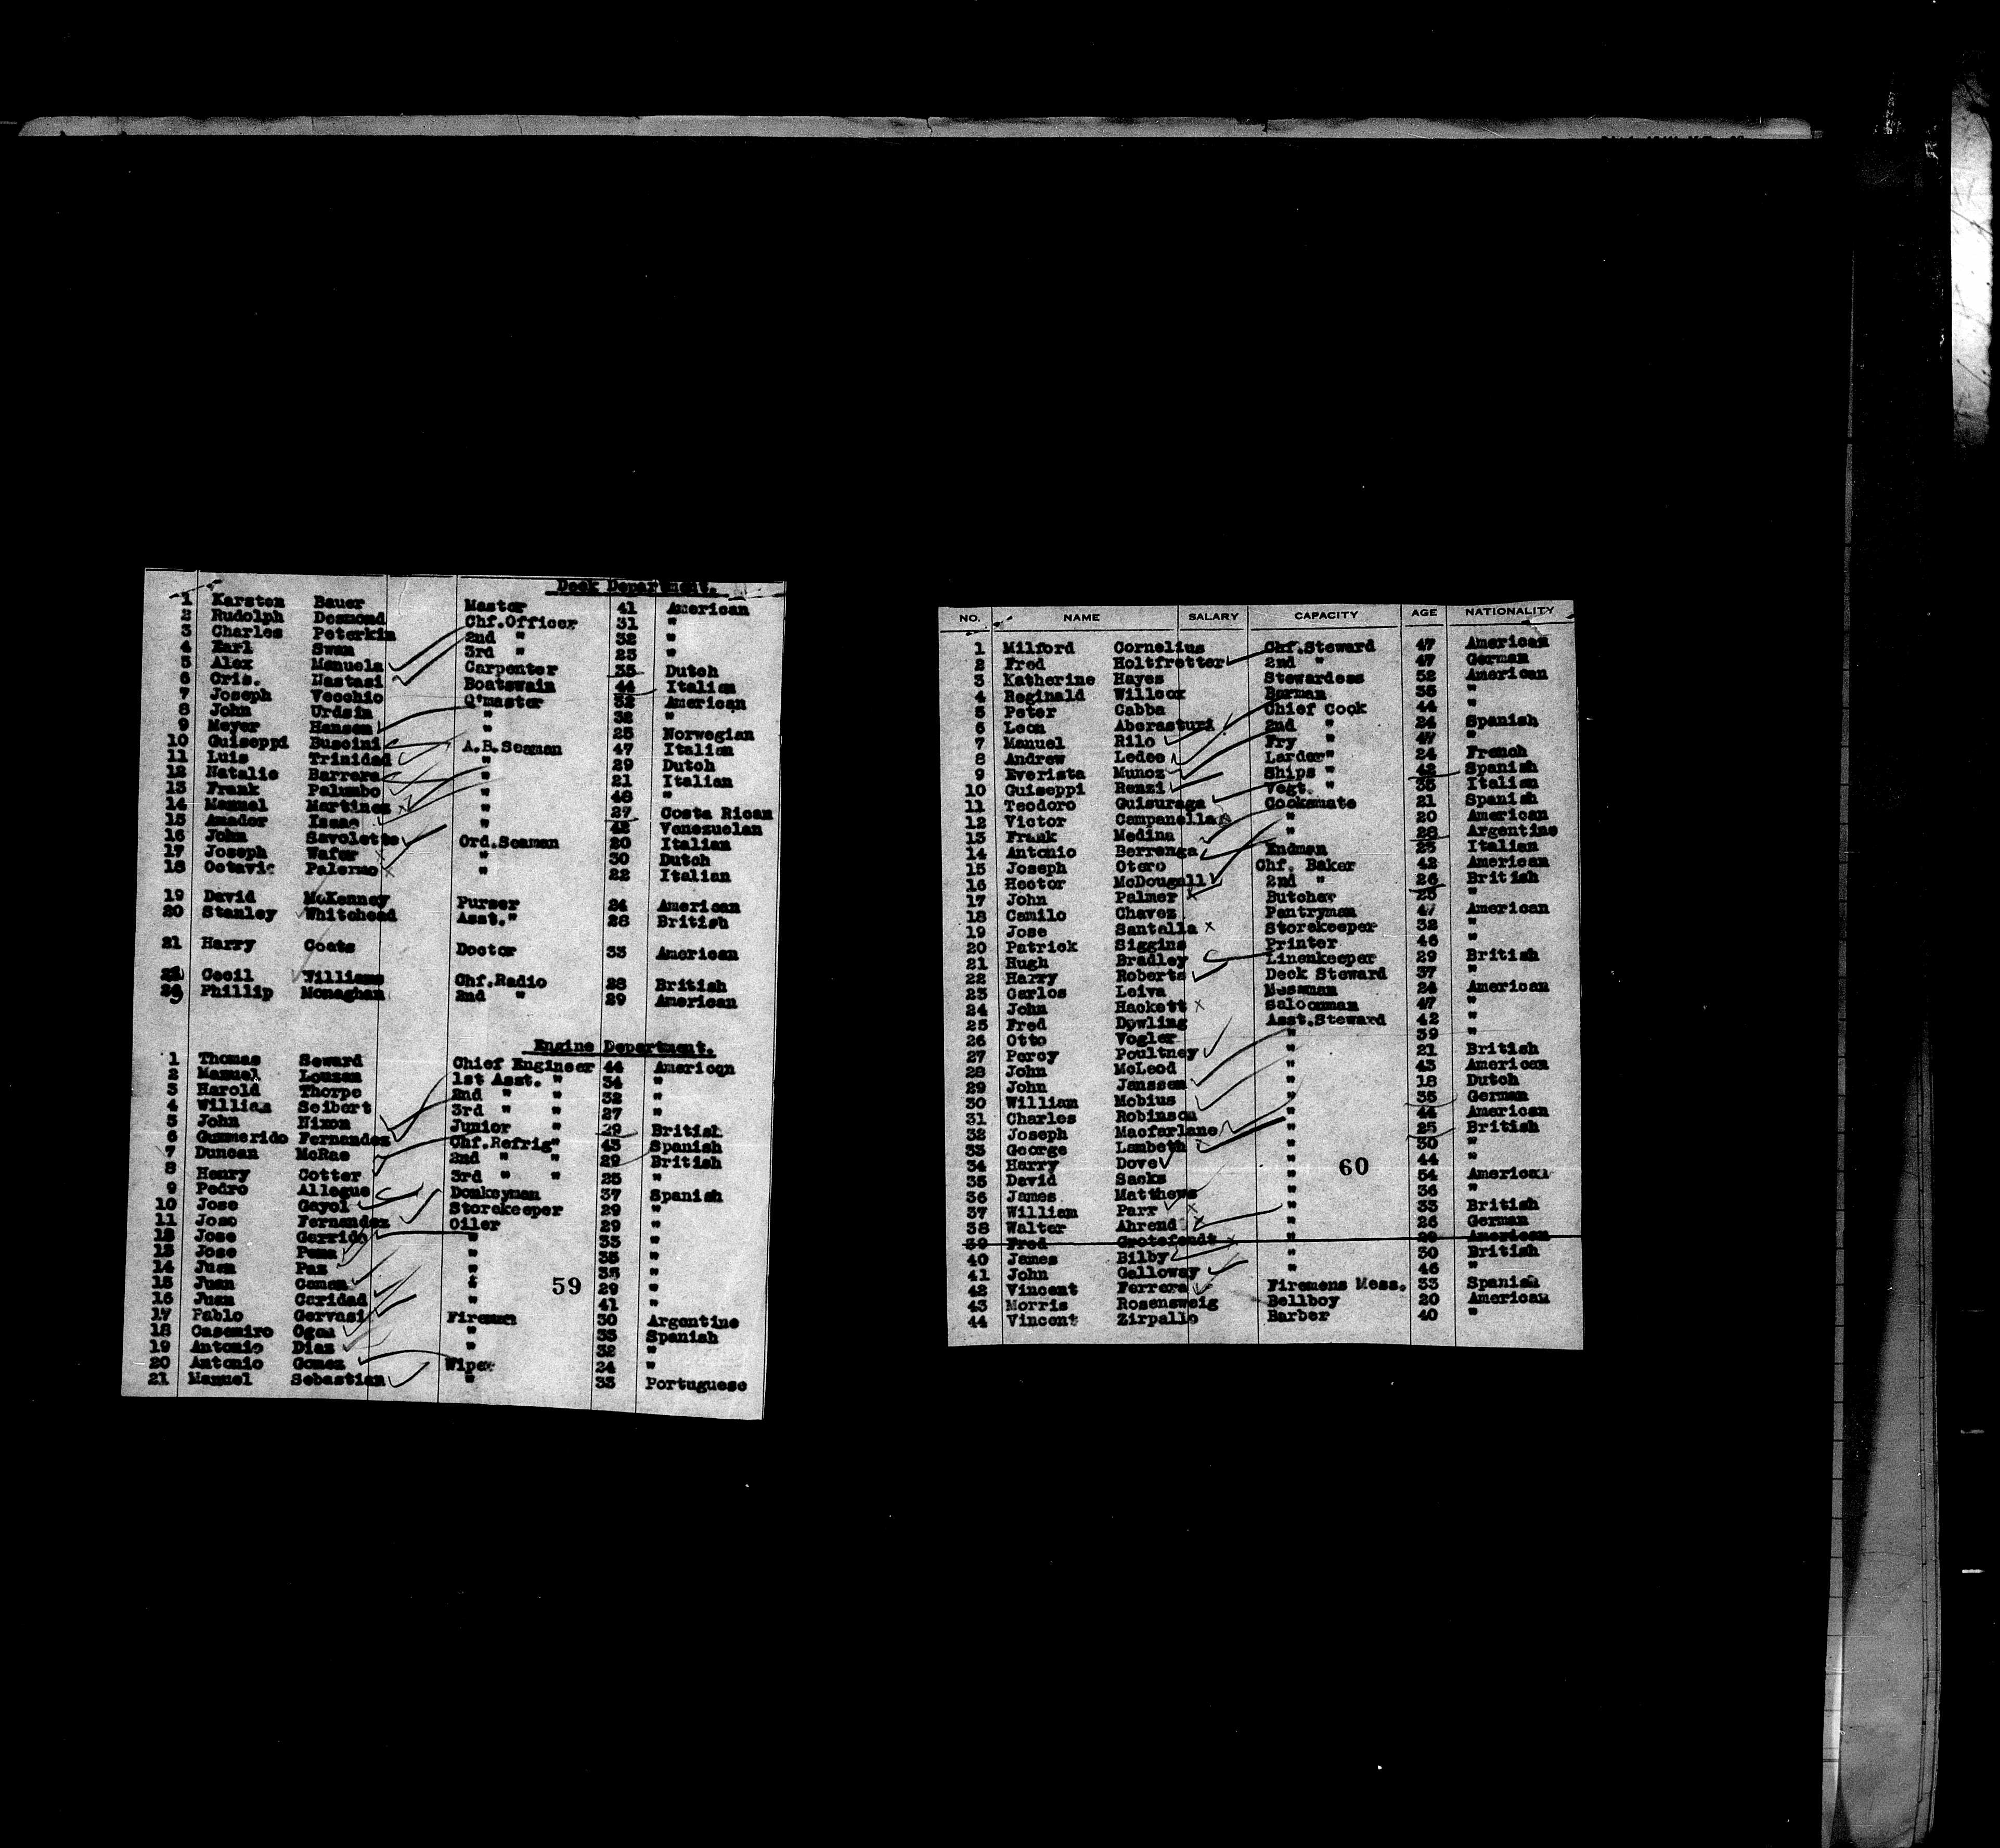 Deck Department.
1 Karsten Bauer Master 41 American
2 Rudolph Desmond Chf.Officer 31 "
3 Charles Peterkin 2nd " 32 "
4 Earl Swan 3rd " 23 "
5 Alex Manuela Carpenter 35 Dutch
6 Cris. Nastasi Boatswain 44 Italian
7 Joseph Vecchio Q'master 32 American
8 John Urdsin " 32 "
9 Meyer Hansen " 25 Norwegian
10 Guiseppi Buseini A.B.Seaman 47 Italian
11 Luis Trinidad " 29 Dutch
12 Natalie Barrera " 21 Italian
13 Frank Palumbo " 46 "
14 Manuel Martinez " 27 Costa Rican
15 Amador Isaac " 42 Venezuelan
16 John Savolette Ord.Seaman 20 Italian
17 Joseph Wafer " 30 Dutch
18 Octavic Palermo " 22 Italian
19 David McKenney Purser 24 American
20 Stanley Whitehead Asst." 28 British
21 Harry Coats Doctor 33 American
Cecil Williams Chf.Radio 28 British
Phillip Monaghan 2nd " 29 American
Engine Department.
1 Thomas Seward Chief Engineer 44 Americqn
2 Manuel Louzan 1st Asst. " 34 "
3 Harold Thorpe 2nd " " 32 "
4 William Seibert 3rd " " 27 "
5 John Nixon Junior " 29 British
6 Gumerido Fernandez Chf.Refrig" 43 Spanish
7 Duncan McRae 2nd " " 29 British
8 Henry Cotter 3rd " " 25 "
9 Pedro Allegue Donkeyman 37 Spanish
10 Jose Gayol Storekeeper 29 "
11 Jose Fernandez Oiler 29 "
12 Jose Garrido " 33 "
13 Jose Pena " 35 "
14 Juan Paz " 35 "
15 Juan Caman " 29 "
16 Juan Caridad " 41 "
17 Pablo Gervasi Fireman 30 Argentine
18 Casemiro Ogea " 35 Spanish
19 Antonio Diaz " 32 "
20 Antonio Gomez Wiper 24 "
21 Manuel Sebastian " 33 Portuguese
59
NO. NAME SALARY CAPACITY AGE NATIONALITY
1 Milford Cornelius Chf.Steward 47 American
2 Fred Holtfretter 2nd " 47 German
3 Katherine Hayes Stewardess 52 American
4 Reginald Willcox Barman 35 "
5 Peter Cabba Chief Cook 44 "
6 Leon Aberasturi 2nd " 24 Spanish
7 Manuel Rilo Fry " 47 "
8 Andrew Ledee Larder" 24 French
9 Everista Munoz Ships " 42 Spanish
10 Guiseppi Renzi Vegt. " 35 Italian
11 Teodoro Guisuraga Cooksmate 21 Spanish
12 Victor Campanella " 20 American
13 Frank Medina " 28 Argentine
14 Antonio Berrenga Endman 25 Italian
15 Joseph Otero Chf. Baker 42 American
16 Hector McDougall 2nd " 26 British
17 John Palmer Butcher 26 "
18 Camilo Chavez Pantryman 47 American
19 Jose Santalla Storekeeper 32 "
20 Patrick Siggins Printer 46 "
21 Hugh Bradley Linenkeeper 29 British
22 Harry Roberts Deck Steward 37 "
23 Carlos Leiva Messman 24 American
24 John Hackett Saloonman 47 "
25 Fred Dowling Asst.Steward 42 "
26 Otto Vogler " 39 "
27 Percy Poultney " 21 British
28 John McLeod " 43 American
29 John Janssen " 18 Dutch
30 William Mobius " 35 German
31 Charles Robinson " 44 American
32 Joseph Macfarlane " 25 British
33 George Lambeth " 30 "
34 Harry Dove " 44 "
35 David Sacks " 54 American
36 James Matthews " 36 "
37 William Parr " 33 British
38 Walter Ahrend " 26 German
39 Fred Grotefendt " 29 American
40 James Bilby " 30 British
41 John Galloway " 46 "
42 Vincent Ferrera Firemens Mess. 33 Spanish
43 Morris Rosensweig Bellboy 20 American
44 Vincent Zirpallo Barber 40 "
60